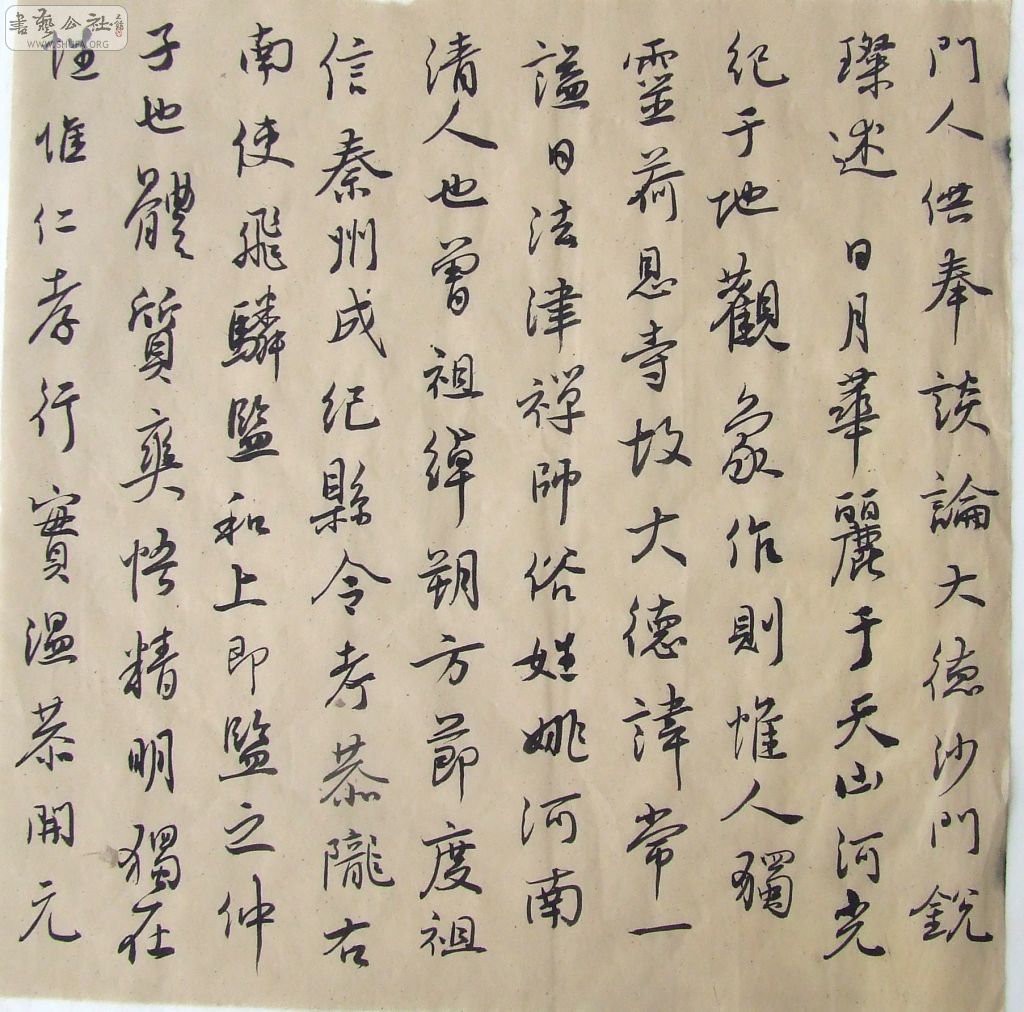 書藝公社
WWW.SHUFA.ORG
門人供奉談論大德沙門銳
璨述日月華麗于天山河光
紀于地觀象作則惟人獨
靈荷恩寺故大德諱常一
謚曰法津禪師俗姓姚河南
清人也曾祖綽朔方節度祖
信秦州成紀縣令考恭隴右
南使飛驎監和上即監之仲
子也體質爽悟精明獨在
性惟仁孝行實溫恭開元